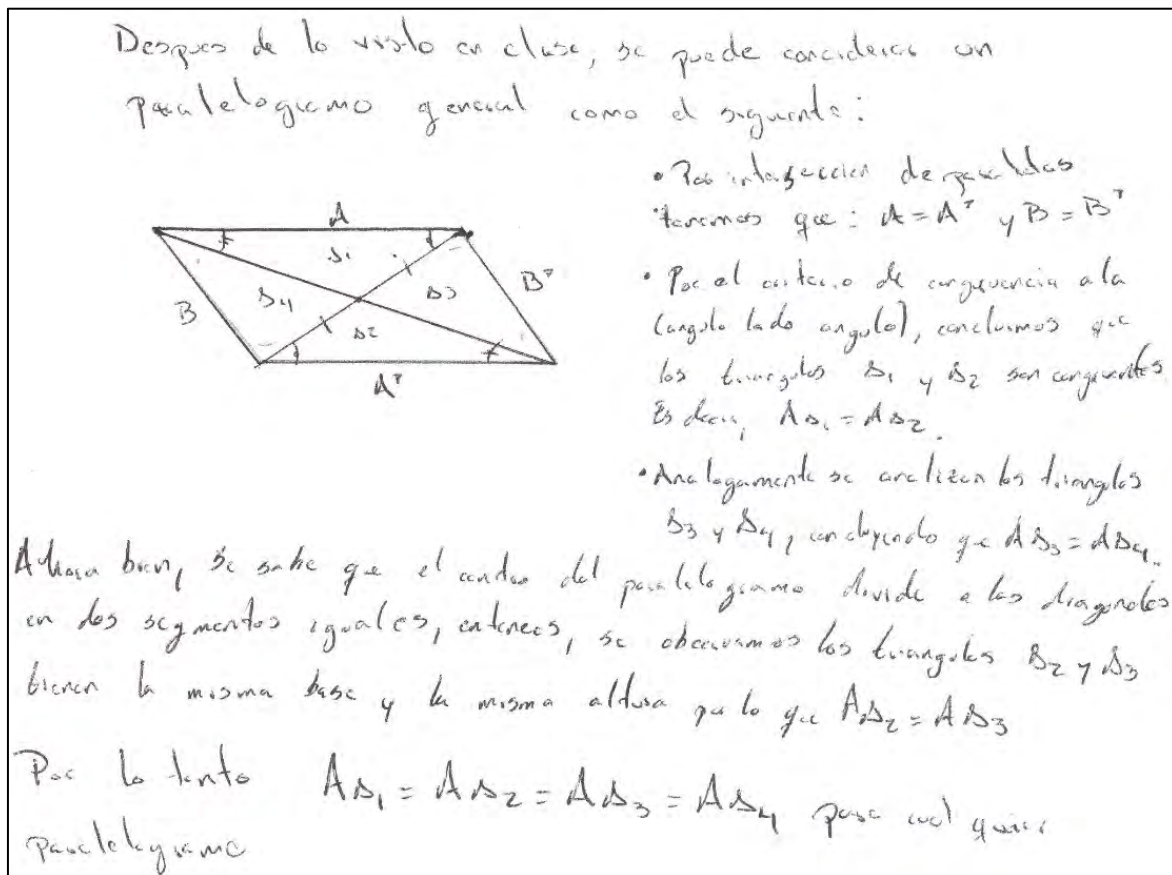 Despues de lo visto en clase, se puede conciderar un
paralelogramo general como el siguiente:
A
B
B'
A'
Δ1
Δ2
Δ3
Δ4
• Por interseccion de paralelas
tenemos que: A = A' y B = B'
• Por el criterio de congruencia ala
(angulo lado angulo), concluimos que
los triangulos Δ1 y Δ2 son congruentes
Es decir, AΔ1 = AΔ2.
• Analogamente se analizan los triangulos
Δ3 y Δ4, concluyendo que AΔ3 = AΔ4.
Ahora bien, se sabe que el centro del paralelogramo divide a las diagonales
en dos segmentos iguales, entonces, si observamos los triangulos Δ2 y Δ3
tienen la misma base y la misma altura por lo que AΔ2 = AΔ3
Por lo tanto AΔ1 = AΔ2 = AΔ3 = AΔ4 para cualquier
paralelogramo